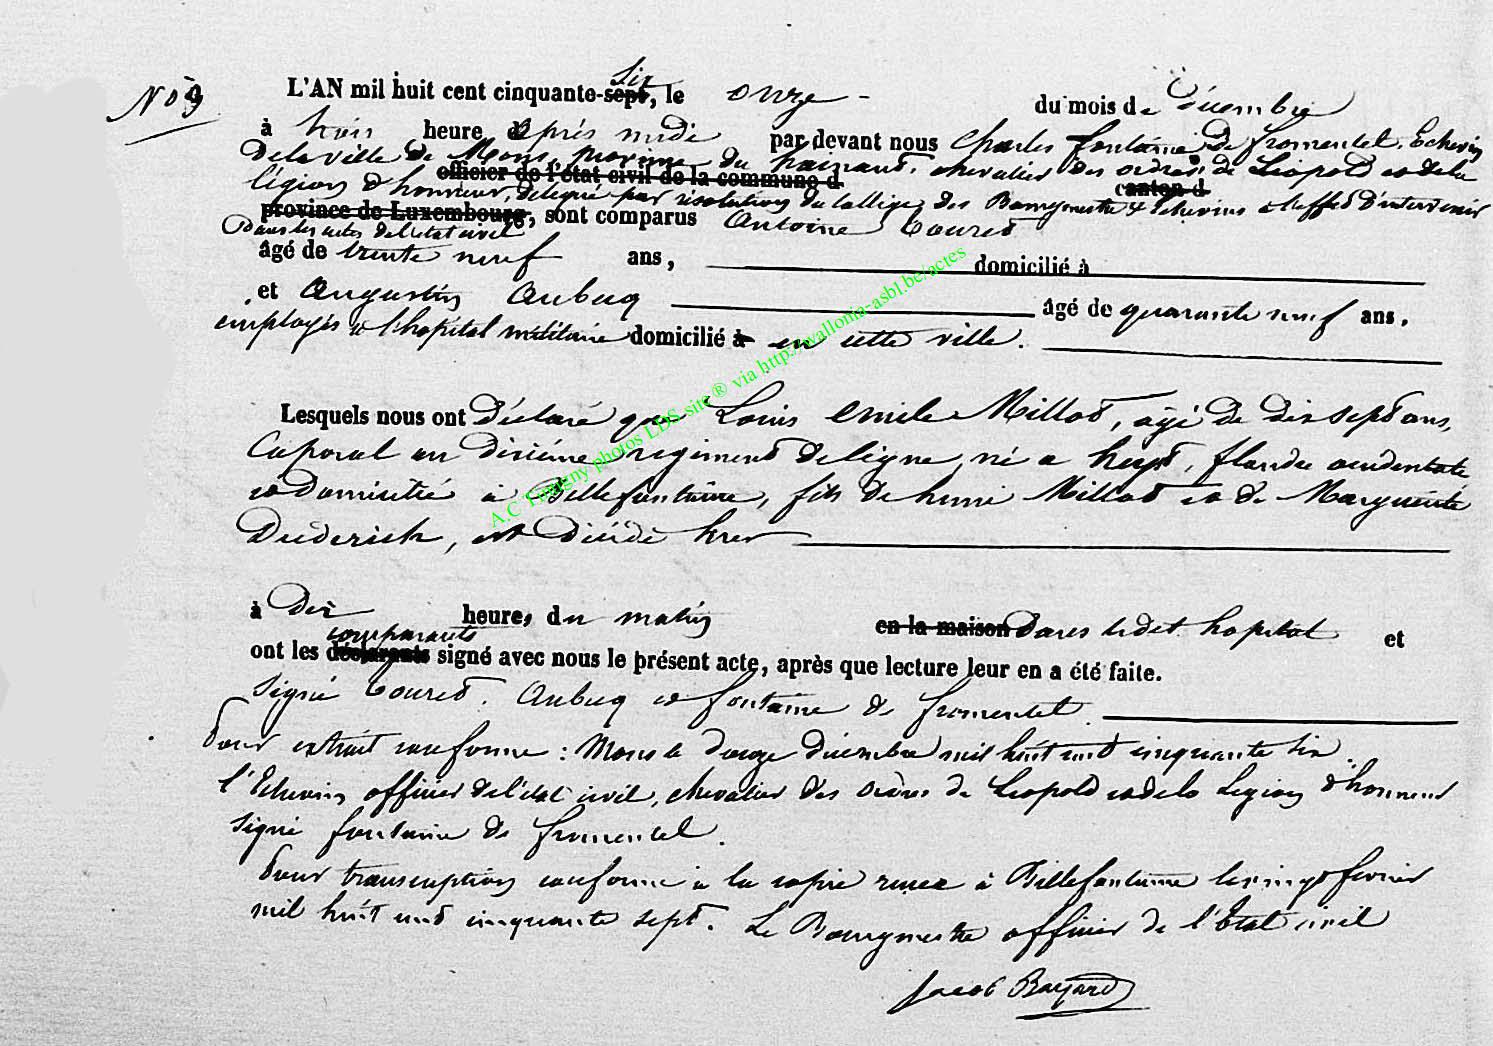 No 9
L'AN mil huit cent cinquante-sept six, le onze du mois de décembre
à trois heure d après midi par devant nous Charles fontaine de fromentel, Echevin
de la ville de Mons, province du hainaut, chevalier des ordres de Léopold et de la
officier de l'état civil de la commune d canton d
légion d'honneur, délégué par résolution du Collège des Bourgmestre & Echevins à l'effet d'intervenir
province de Luxembourg, sont comparus Antoine Couret
dans les actes de l'état civil
âgé de trente neuf ans, domicilié à
et Augustin Aubucq âgé de quarante neuf ans,
employés à l'hopital militaire domicilié à en cette ville.
Lesquels nous ont déclaré que Louis Emile Millot, âgé de dix sept ans,
Caporal au dixième régiment de ligne, né a heyst, flandre occidentale
et domicilié à Bellefontaine, fils de Millot et de Marguerite
Diederich, est décédé hier
à dix heures du matin en la maison dans ledit hopital et
comparants
ont les déclarants signé avec nous le présent acte, après que lecture leur en a été faite.
Signé Couret. Aubucq et fontaine de fromentel
Pour extrait conforme : Mons le douze décembre mil huit cent cinquante six.
l'Echevin officier de l'état civil, chevalier des ordres de Léopold et de la Légion d'honneur
Signé fontaine de fromentel.
Pour transcription conforme à la copie reçue à Bellefontaine le vingt février
mil huit cent cinquante sept. Le Bourgmestre officier de l'Etat civil
Jacob Bayard
A.C Tintigny photos LDS site ® via http://wallonia-asbl.be/actes